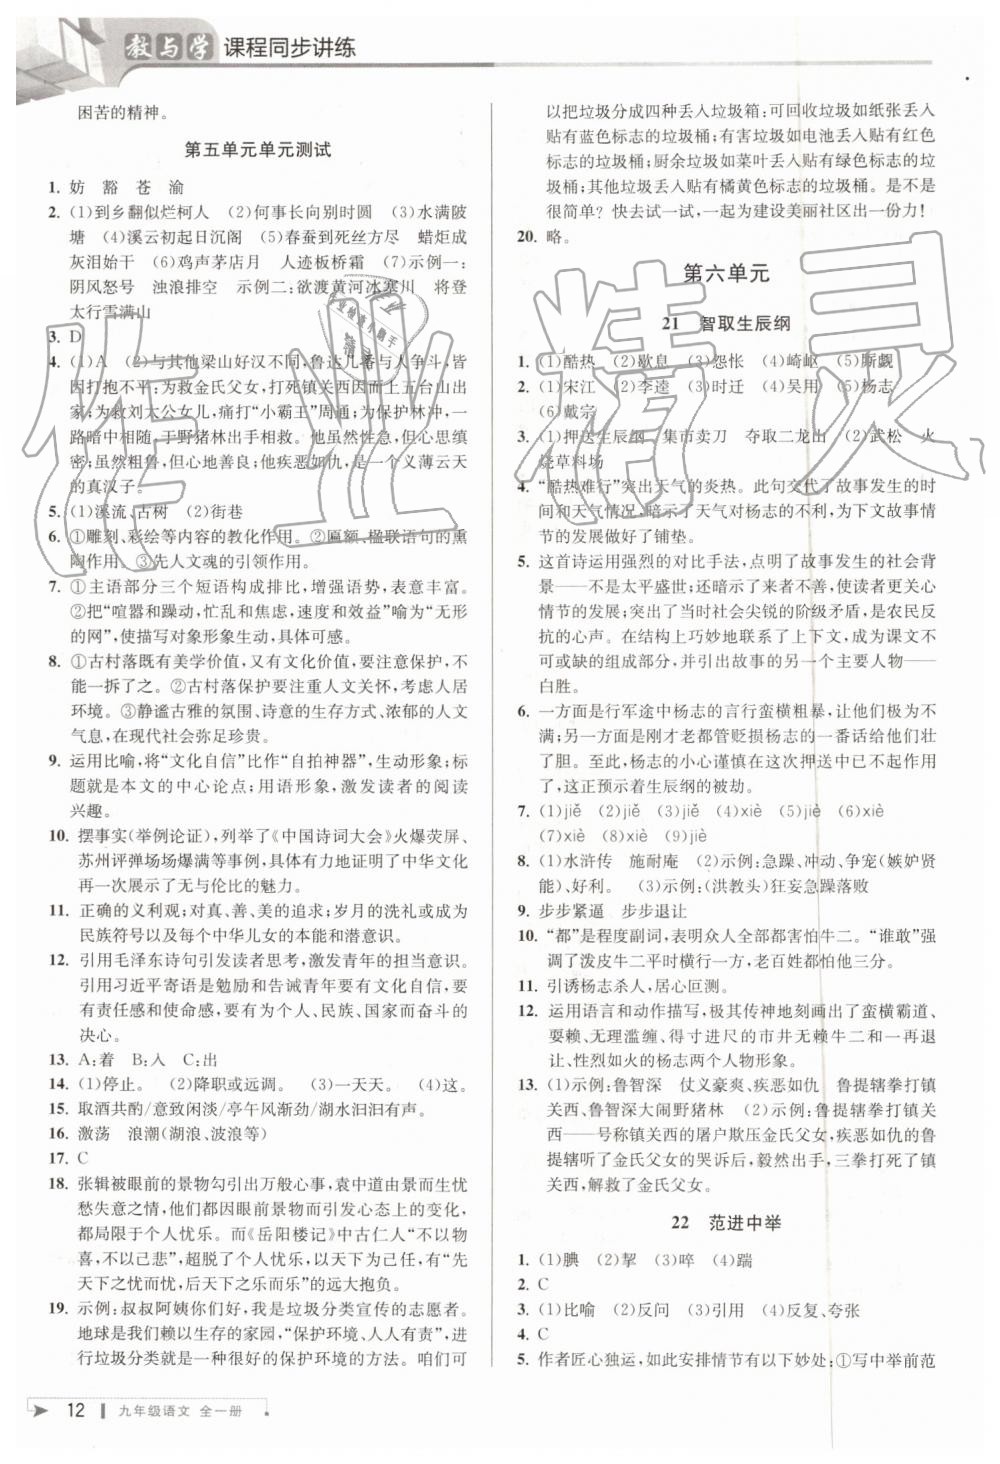 教与学 课程同步讲练
困苦的精神。
第五单元单元测试
1. 妨 豁 苍 渝
2. (1)到乡翻似烂柯人 (2)何事长向别时圆 (3)水满陂
塘 (4)溪云初起日沉阁 (5)春蚕到死丝方尽 蜡炬成
灰泪始干 (6)鸡声茅店月 人迹板桥霜 (7)示例一:
阴风怒号 浊浪排空 示例二:欲渡黄河冰塞川 将登
太行雪满山
3. D
4. (1)A (2)与其他梁山好汉不同,鲁达几番与人争斗,皆
因打抱不平;为救金氏父女,打死镇关西因而上五台山出
家;为救刘太公女儿,痛打“小霸王”周通;为保护林冲,一
路暗中相随,于野猪林出手相救。他虽然性急,但心思缜
密;虽然粗鲁,但心地善良;他疾恶如仇,是一个义薄云天
的真汉子。
5. (1)溪流、古树 (2)街巷
6. ①雕刻、彩绘等内容的教化作用。②匾额、楹联语句的熏
陶作用。③先人文魂的引领作用。
7. ①主语部分三个短语构成排比,增强语势,表意丰富。
②把“喧嚣和躁动,忙乱和焦虑,速度和效益”喻为“无形
的网”,使描写对象形象生动,具体可感。
8. ①古村落既有美学价值,又有文化价值,要注意保护,不
能一拆了之。②古村落保护要注重人文关怀,考虑人居
环境。③静谧古雅的氛围、诗意的生存方式、浓郁的人文
气息,在现代社会弥足珍贵。
9. 运用比喻,将“文化自信”比作“自拍神器”,生动形象;标
题就是本文的中心论点;用语形象,激发读者的阅读
兴趣。
10. 摆事实(举例论证),列举了《中国诗词大会》火爆荧屏、
苏州评弹场场爆满等事例,具体有力地证明了中华文化
再一次展示了无与伦比的魅力。
11. 正确的义利观;对真、善、美的追求;岁月的洗礼或成为
民族符号以及每个中华儿女的本能和潜意识。
12. 引用毛泽东诗句引发读者思考、激发青年的担当意识。
引用习近平寄语是勉励和告诫青年要有文化自信,要
有责任感和使命感,要有为个人、民族、国家而奋斗的
决心。
13. A:着 B:入 C:出
14. (1)停止。 (2)降职或远调。 (3)一天天。 (4)这。
15. 取酒共酌/意致闲淡/亭午风渐劲/湖水汩汩有声。
16. 激荡 浪潮(湖浪、波浪等)
17. C
18. 张辑被眼前的景物勾引出万般心事,袁中道由景而生忧
愁失意之情,他们都因景物的变化而引发心态上的变化,
都局限于个人忧乐。而《岳阳楼记》中古仁人“不以物
喜,不以己悲”,超脱了个人忧乐,以天下为己任,有“先
天下之忧而忧,后天下之乐而乐”的远大抱负。
19. 示例:叔叔阿姨你们好,我是垃圾分类宣传的志愿者。
地球是我们赖以生存的家园,“保护环境、人人有责”,进
行垃圾分类就是一种很好的保护环境的方法。咱们可
以把垃圾分成四种丢入垃圾箱:可回收垃圾如纸张丢入
贴有蓝色标志的垃圾桶;有害垃圾如电池丢入贴有红色
标志的垃圾桶;厨余垃圾如菜叶丢入贴有绿色标志的垃
圾桶;其他垃圾丢入贴有橘黄色标志的垃圾桶。是不是
很简单?快去试一试,一起为建设美丽社区出一份力!
20. 略。
第六单元
21 智取生辰纲
1. (1)酷热 (2)歇息 (3)怨怅 (4)崎岖 (5)厮觑
2. (1)宋江 (2)李逵 (3)时迁 (4)吴用 (5)杨志
(6)戴宗
3. (1)押送生辰纲 集市卖刀 夺取二龙山 (2)武松 火
烧草料场
4. “酷热难行”突出天气的炎热。此句交代了故事发生的时
间和天气情况,暗示了天气对杨志的不利,为下文故事情
节的发展做好了铺垫。
5. 这首诗运用强烈的对比手法,点明了故事发生的社会背
景——不是太平盛世;还暗示了来者不善,使读者更关心
情节的发展;突出了当时社会尖锐的阶级矛盾,是农民反
抗的心声。在结构上巧妙地联系了上下文,成为课文不可
或缺的组成部分,并引出故事的另一个主要人物——
白胜。
6. 一方面是行军途中杨志的言行蛮横粗暴,让他们极为不
满;另一方面是刚才老都管贬损杨志的一番话给他们壮
了胆。至此,杨志的小心谨慎在这次押送中已不起作用
了,这正预示着生辰纲的被劫。
7. (1)jiě (2)jiě (3)jiě (4)xiè (5)jiè (6)xiè
(7)xiè (8)xiè (9)jiě
8. (1)水浒传 施耐庵 (2)示例:急躁、冲动、争宠(嫉妒贤
能)、好利。 (3)示例:(洪教头)狂妄急躁落败
9. 步步紧逼 步步退让
10. “都”是程度副词,表明众人全部都害怕牛二。“谁敢”强
调了泼皮牛二平时横行一方,老百姓都怕他。
11. 引诱杨志杀人,居心叵测。
12. 运用语言和动作描写,极其传神地刻画出了蛮横霸道、
耍赖、无理滥缠、得寸进尺的市井无赖牛二和一再退
让、性烈如火的杨志两个人物形象。
13. (1)示例:鲁智深 仗义豪爽、疾恶如仇 鲁提辖拳打镇
关西、鲁智深大闹野猪林 (2)示例:鲁提辖拳打镇关
西——号称镇关西的屠户欺压金氏父女,疾恶如仇的鲁
提辖听了金氏父女的哭诉后,毅然出手,三拳打死了镇
关西,解救了金氏父女。
22 范进中举
1. (1)腆 (2)挈 (3)啐 (4)踹
2. C
3. (1)比喻 (2)反问 (3)引用 (4)反复、夸张
4. C
5. 作者匠心独运,如此安排情节有以下妙处:①写中举前范
12 九年级语文 全一册
作业精灵